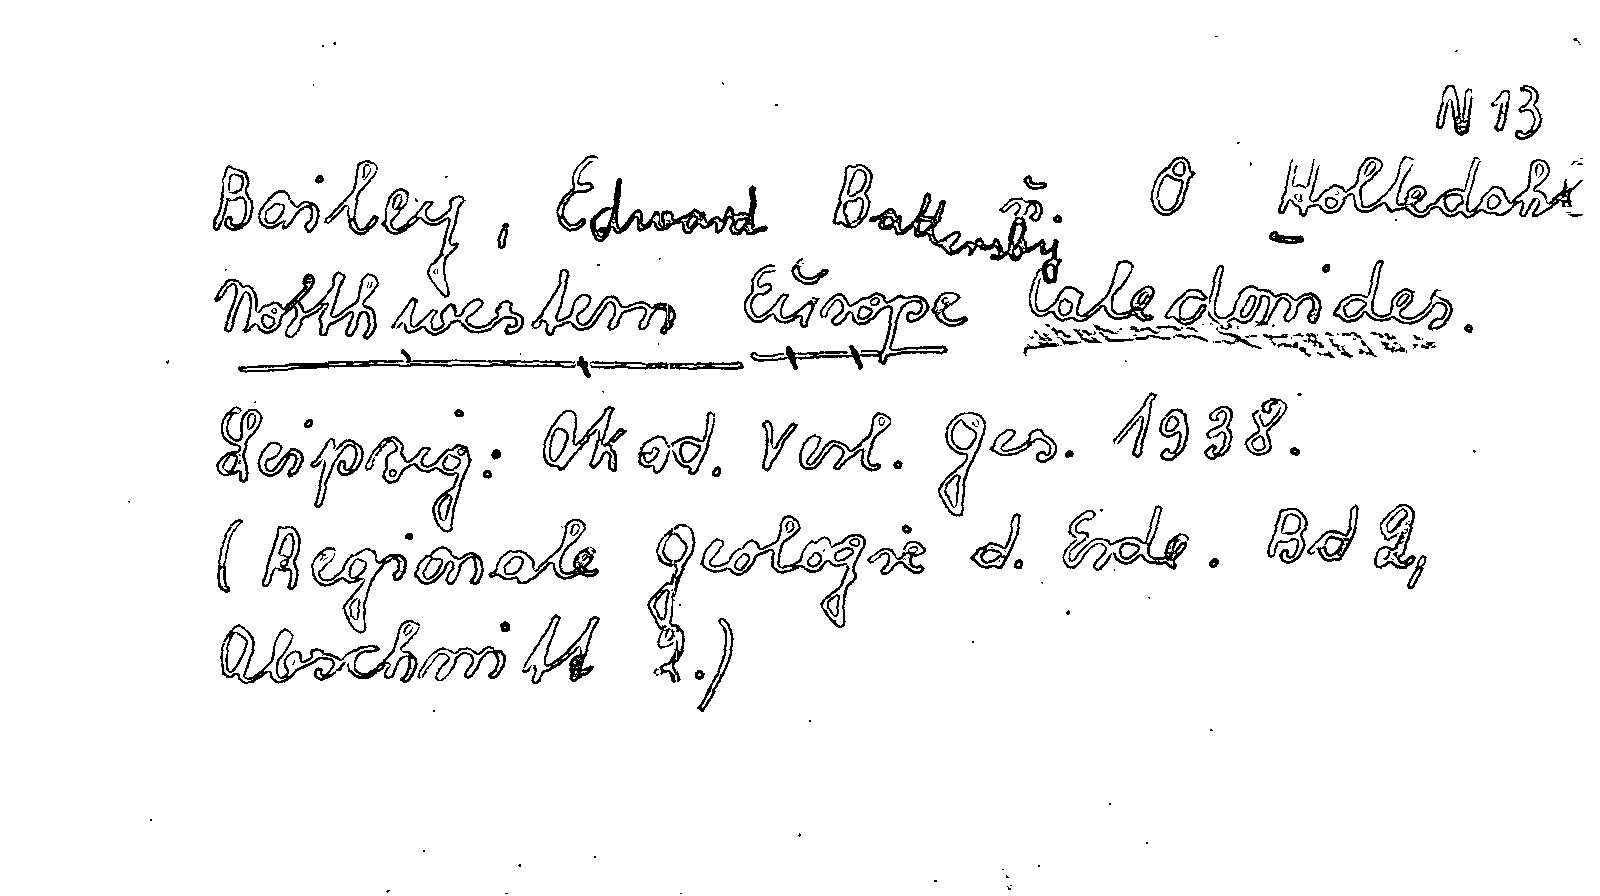 N 13
Bailey, Edward Battersby u. O Holtedahl
Northwestern Europe Caledonides.
Leipzig: Akad. Verl. Ges. 1938.
(Regionale Geologie d. Erde. Bd 2,
Abschnitt 2.)